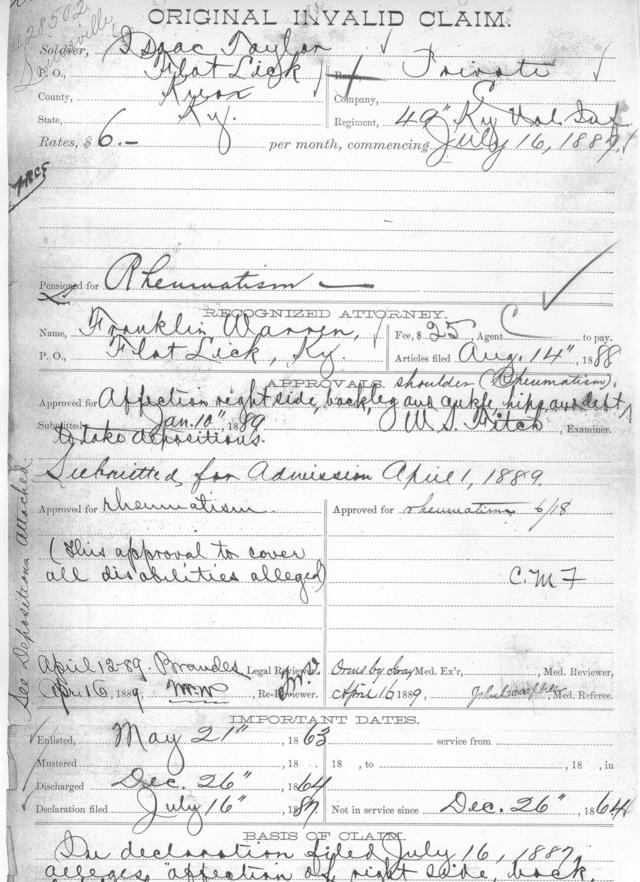 428502
ORIGINAL INVALID CLAIM.
Soldier, Isaac Taylor
P. O., Flat Lick
County, Knox
State, Ky.
Rank, Private
Company, E
Regiment, 49" Ky Vol. Inf.
Rates, $ 6.— per month, commencing July 16, 1887,
Pensioned for Rheumatism
RECOGNIZED ATTORNEY.
Name, Franklin Warren,
P. O., Flat Lick, Ky.
Fee, $ 25 Agent to pay.
Articles filed Aug. 14", 1888
APPROVALS.
shoulder (Rheumatism).
Approved for Affection right side, back, leg and ankle hips and debt
Submitted Jan. 10", 89 W. S. Fitch, Examiner.
to take depositions.
Submitted for Admission April 1, 1889.
See Depositions Attached.
Approved for rheumatism
(This approval to cover
all disabilities alleged)
April 12 89. Brandes Legal Reviewer.
Apr. 16, 1889, Re-Reviewer.
Approved for rheumatism 6/18
C. M. F
Med. Ex'r, Med. Reviewer,
April 16 1889, Med. Referee.
IMPORTANT DATES.
Enlisted, May 21", 1863
Mustered , 18
Discharged Dec. 26" 1864
Declaration filed July 16", 1887.
service from
18 , to , 18 , in
Not in service since Dec. 26", 1864
BASIS OF CLAIM.
In declaration filed July 16, 1887
alleges "affection of right side, back,